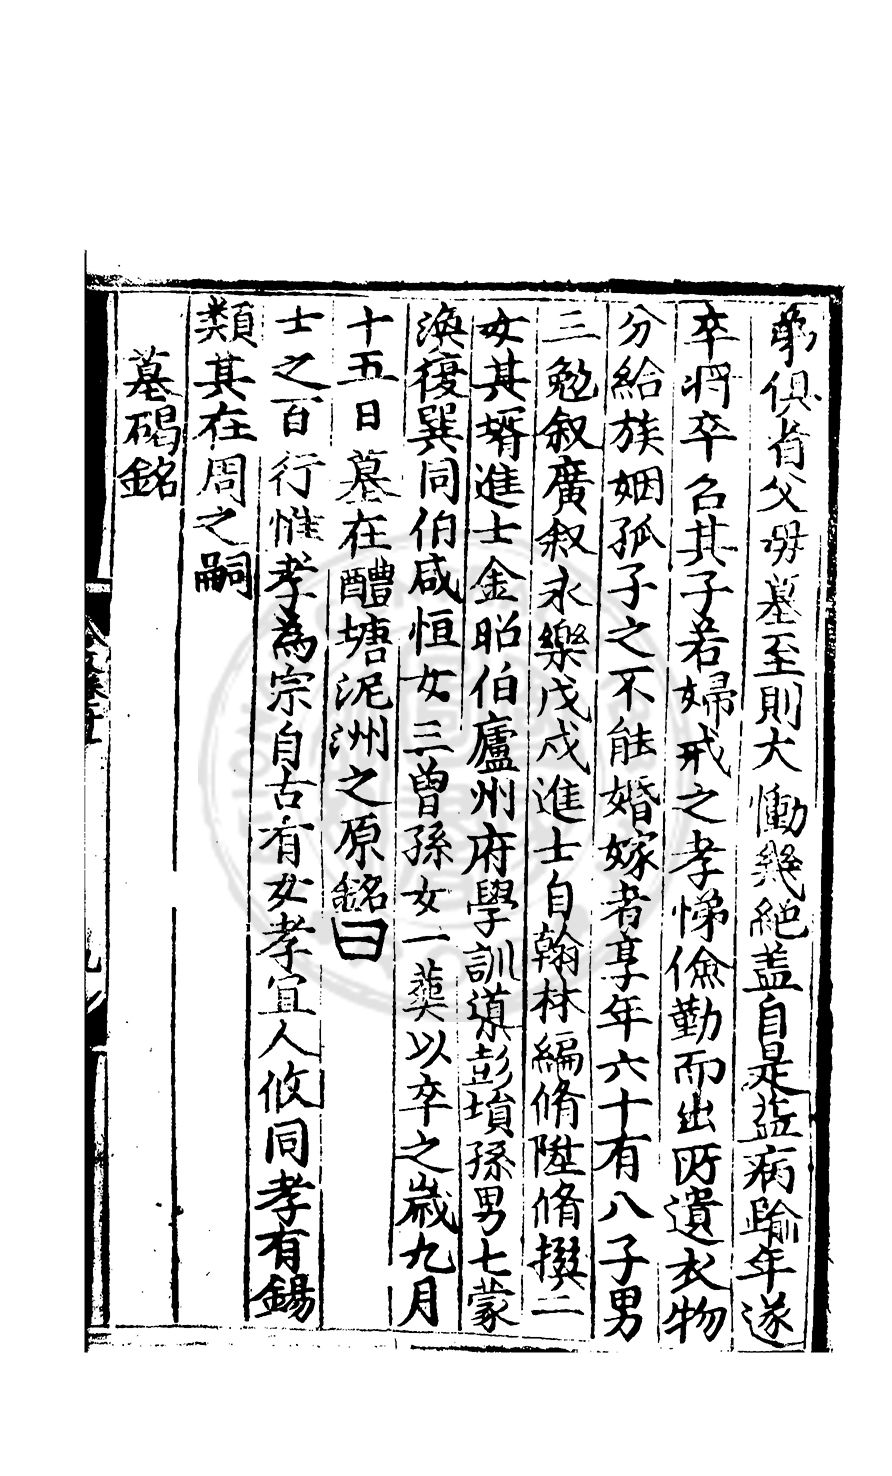 弟俱省父母墓至則大慟幾絕盖自是益病踰年遂
卒将卒召其子若婦戒之孝悌儉勤而出所遺衣物
分給族姻孤子之不能婚嫁者享年六十有八子男
三勉叙廣叙永樂戊戌進士自翰林編脩陞脩撰二
女其壻進士金昭伯廬州府學訓導彭塤孫男七蒙
渙復巽同伯咸恒女三曾孫女一葬以卒之歲九月
十五日墓在醴塘泥洲之原銘曰
士之百行惟孝為宗自古有女孝宜人攸同孝有錫
類其在周之嗣
墓碣銘